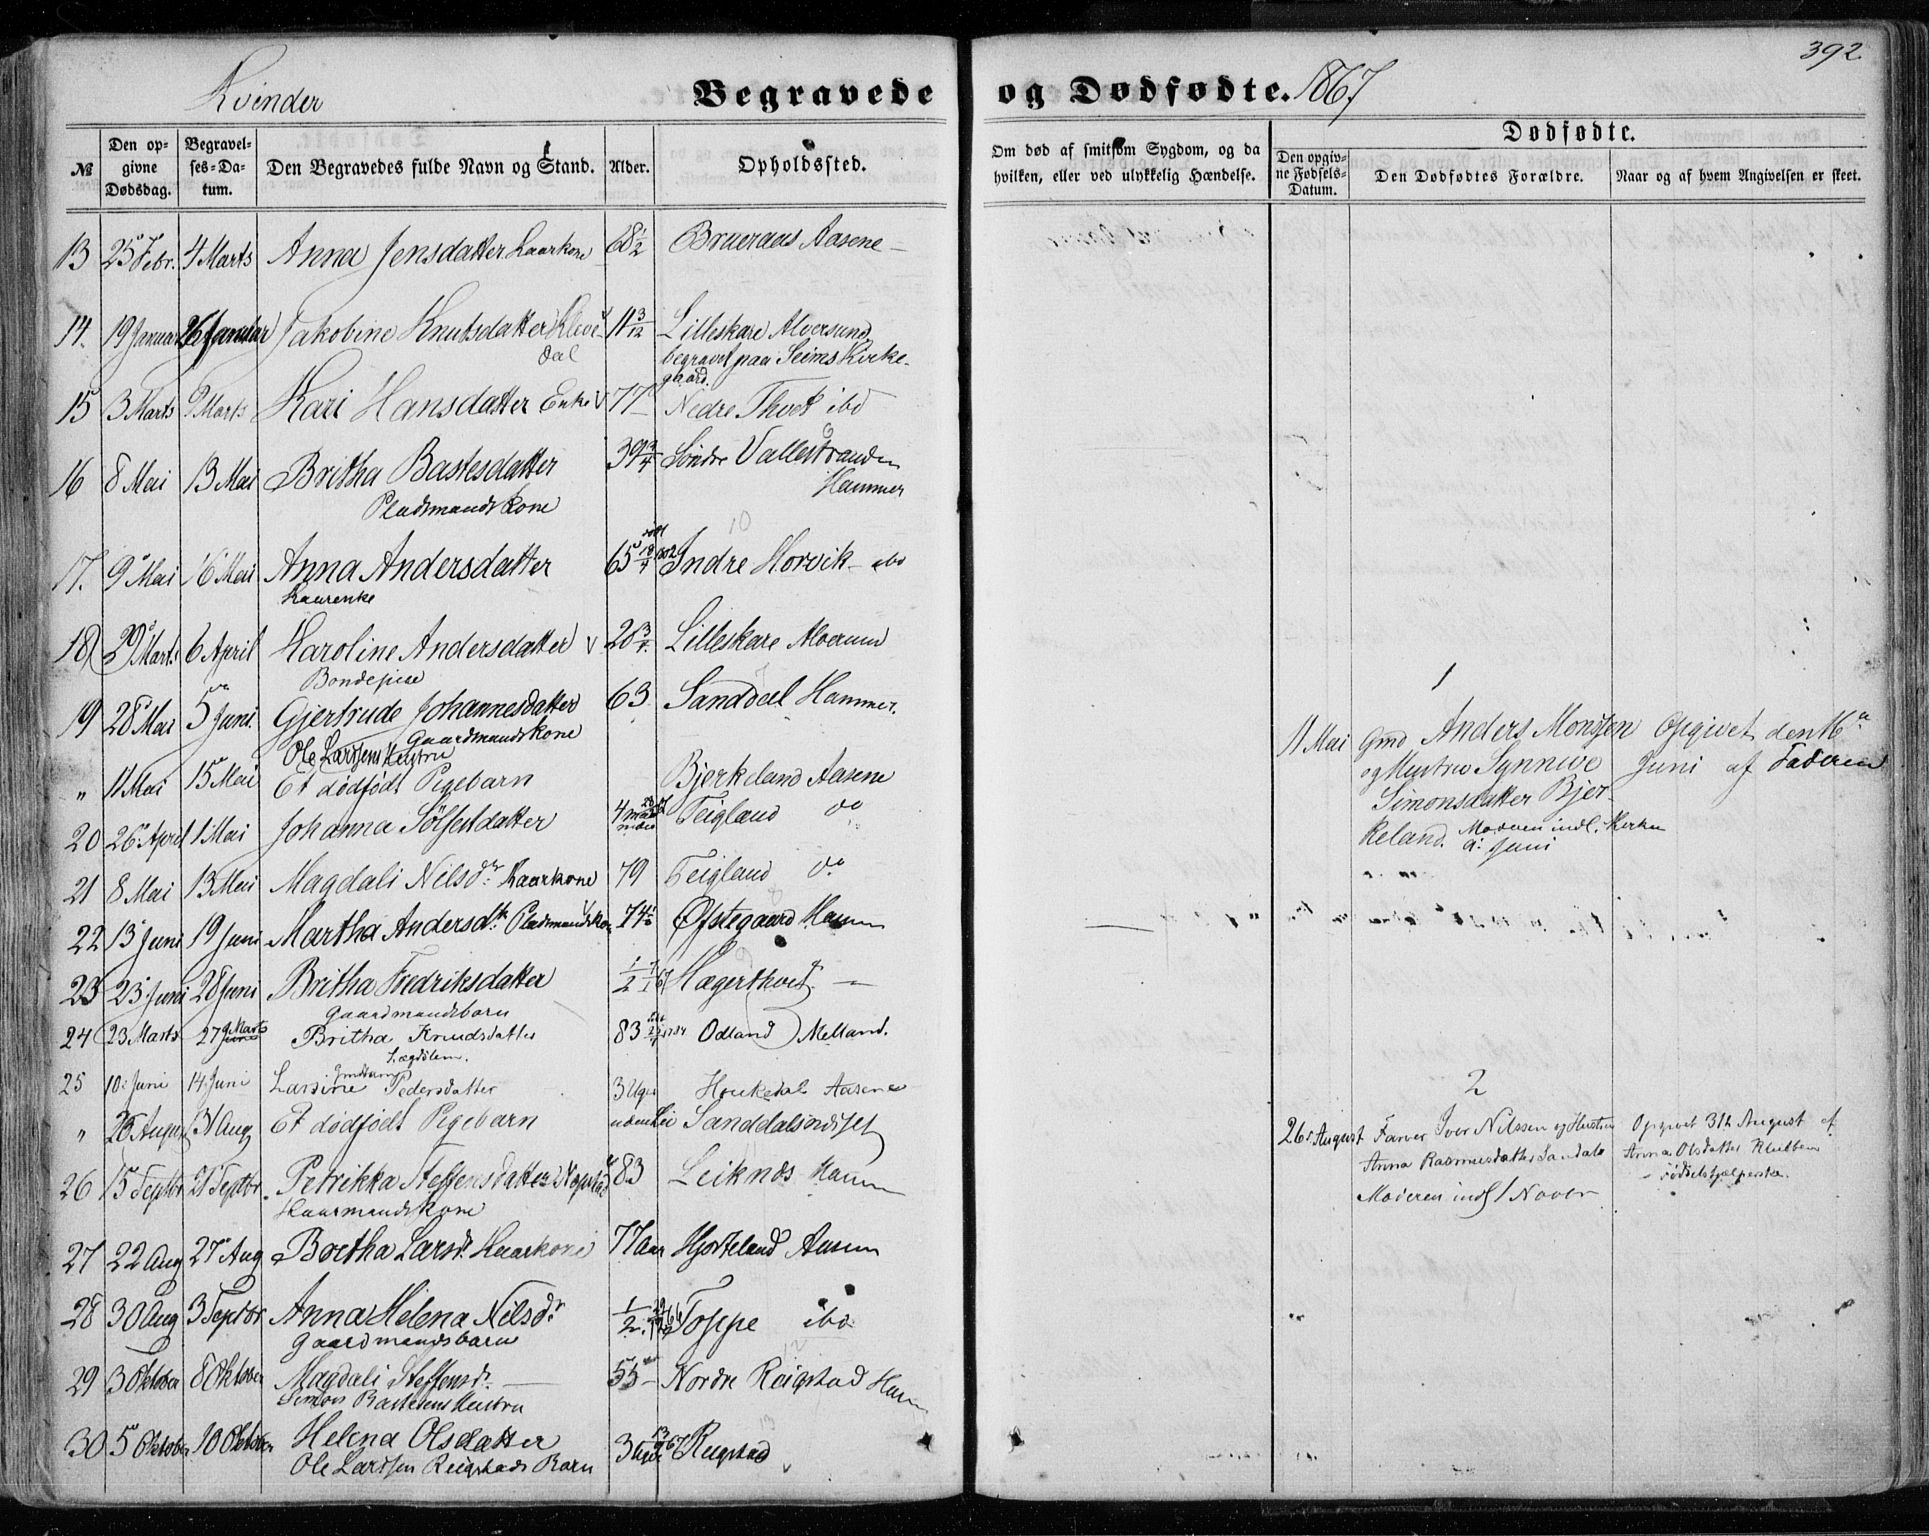 392
Kvinder
Begravede og Dødfødte. 1867
№
Den opgivne Dødsdag.
Begravelses-Datum.
Den Begravedes fulde Navn og Stand.
Alder.
Opholdssted.
Om død af smitsom Sygdom, og da hvilken, eller ved ulykkelig Hændelse.
Dødfødte.
Den opgivne Fødsels-Datum.
Den Dødfødtes Forældre.
Naar og af hvem Angivelsen er skeet.
13 25 Febr. 4 Marts Anna Jensdatter Kaarkone 68 1/2 Aasene
14. 19 Januar 26 Januar Jakobine Knutsdatter Kleve- 11 3/12 Lilleskare Alversund
dal begravet paa Seims Kirke-
gaard.
15 3 Marts 9 Marts Kari Hansdatter Enke 77 Nedre Thvet ibd
16 8 Mai 13 Mai Britha Bastesdatter 39 3/4 Søndre Vallestranden
Pladsmands Kone Hammer
17. 9 Mai 16 Mai Anna Andersdatter 65 Indre Horvik ibd
Kaarenke
18 29 Marts 6 April Karoline Andersdatter 28 3/4 Lilleskare
Bondepige
19 28 Mai 5 Juni. Gjertrude Johannesdatter 63 Sanddal Hammer.
Gaardmandskone
Ole Larssens Hustru
" 11 Mai 15 Mai Et dødfødt Pigebarn Bjerkeland Aasene
20 26 April 1 Mai Johanna Sølfestdatter 4 Teigland do
21 8 Mai 13 Mai Magdali Nilsdr Kaarkone 79 Teigland do
22 13 Juni 19 Juni Martha Andersdtr Pladsmandskone 74 1/2 Øfstegaard Hamm
23 23 Juni 28 Juni Britha Fredriksdatter 1/2 Hægerthvet
Gaardmandsbarn
24 23 Marts 27 Marts Britha Knudsdatter 83 Odland Melland.
Lægdslem.
25 10 Juni 14 Juni Larsine Pedersdatter 3 Uger Houkedal Aasene
" 26 August 31 Aug Et dødfødt Pigebarn Sanddals
26 15 Septbr 21 Septbr. Petrikka Steffensdatter 83 Leiknes Hamm
Kaarmandskone
27 22 Aug 27 Aug Britha Larsdr. Kaarkone 77 Aar Hjorteland Aasen
28 30 Aug 3 Septbr Anna Helena Nilsdr 1/2 Toppe ibd
Gaardmandsbarn
29 3 Oktober 8 Oktober Magdali Steffensdr. 55 Nordre Reigstad Ham
Simon Bastesens Hustru
30 5 Oktober 10 Oktober Helena Olsdatter 3 Uger Reigstad
Ole Larssen Reigstads Barn
1
11 Mai Gmd Anders Monsen Opgivet den
og Hustru Synneve Juni af Faderen
Simonsdatter Bjer-
keland. Moderen indl. Kirken
Juni
2
26 August Farver Iver Nilssen og Hustru Opgivet 31te August af
Anna Rasmusdatter Sandal Anna Olsdatter Klubben
Moderen indl 1 Novbr Fødselshjælperske.